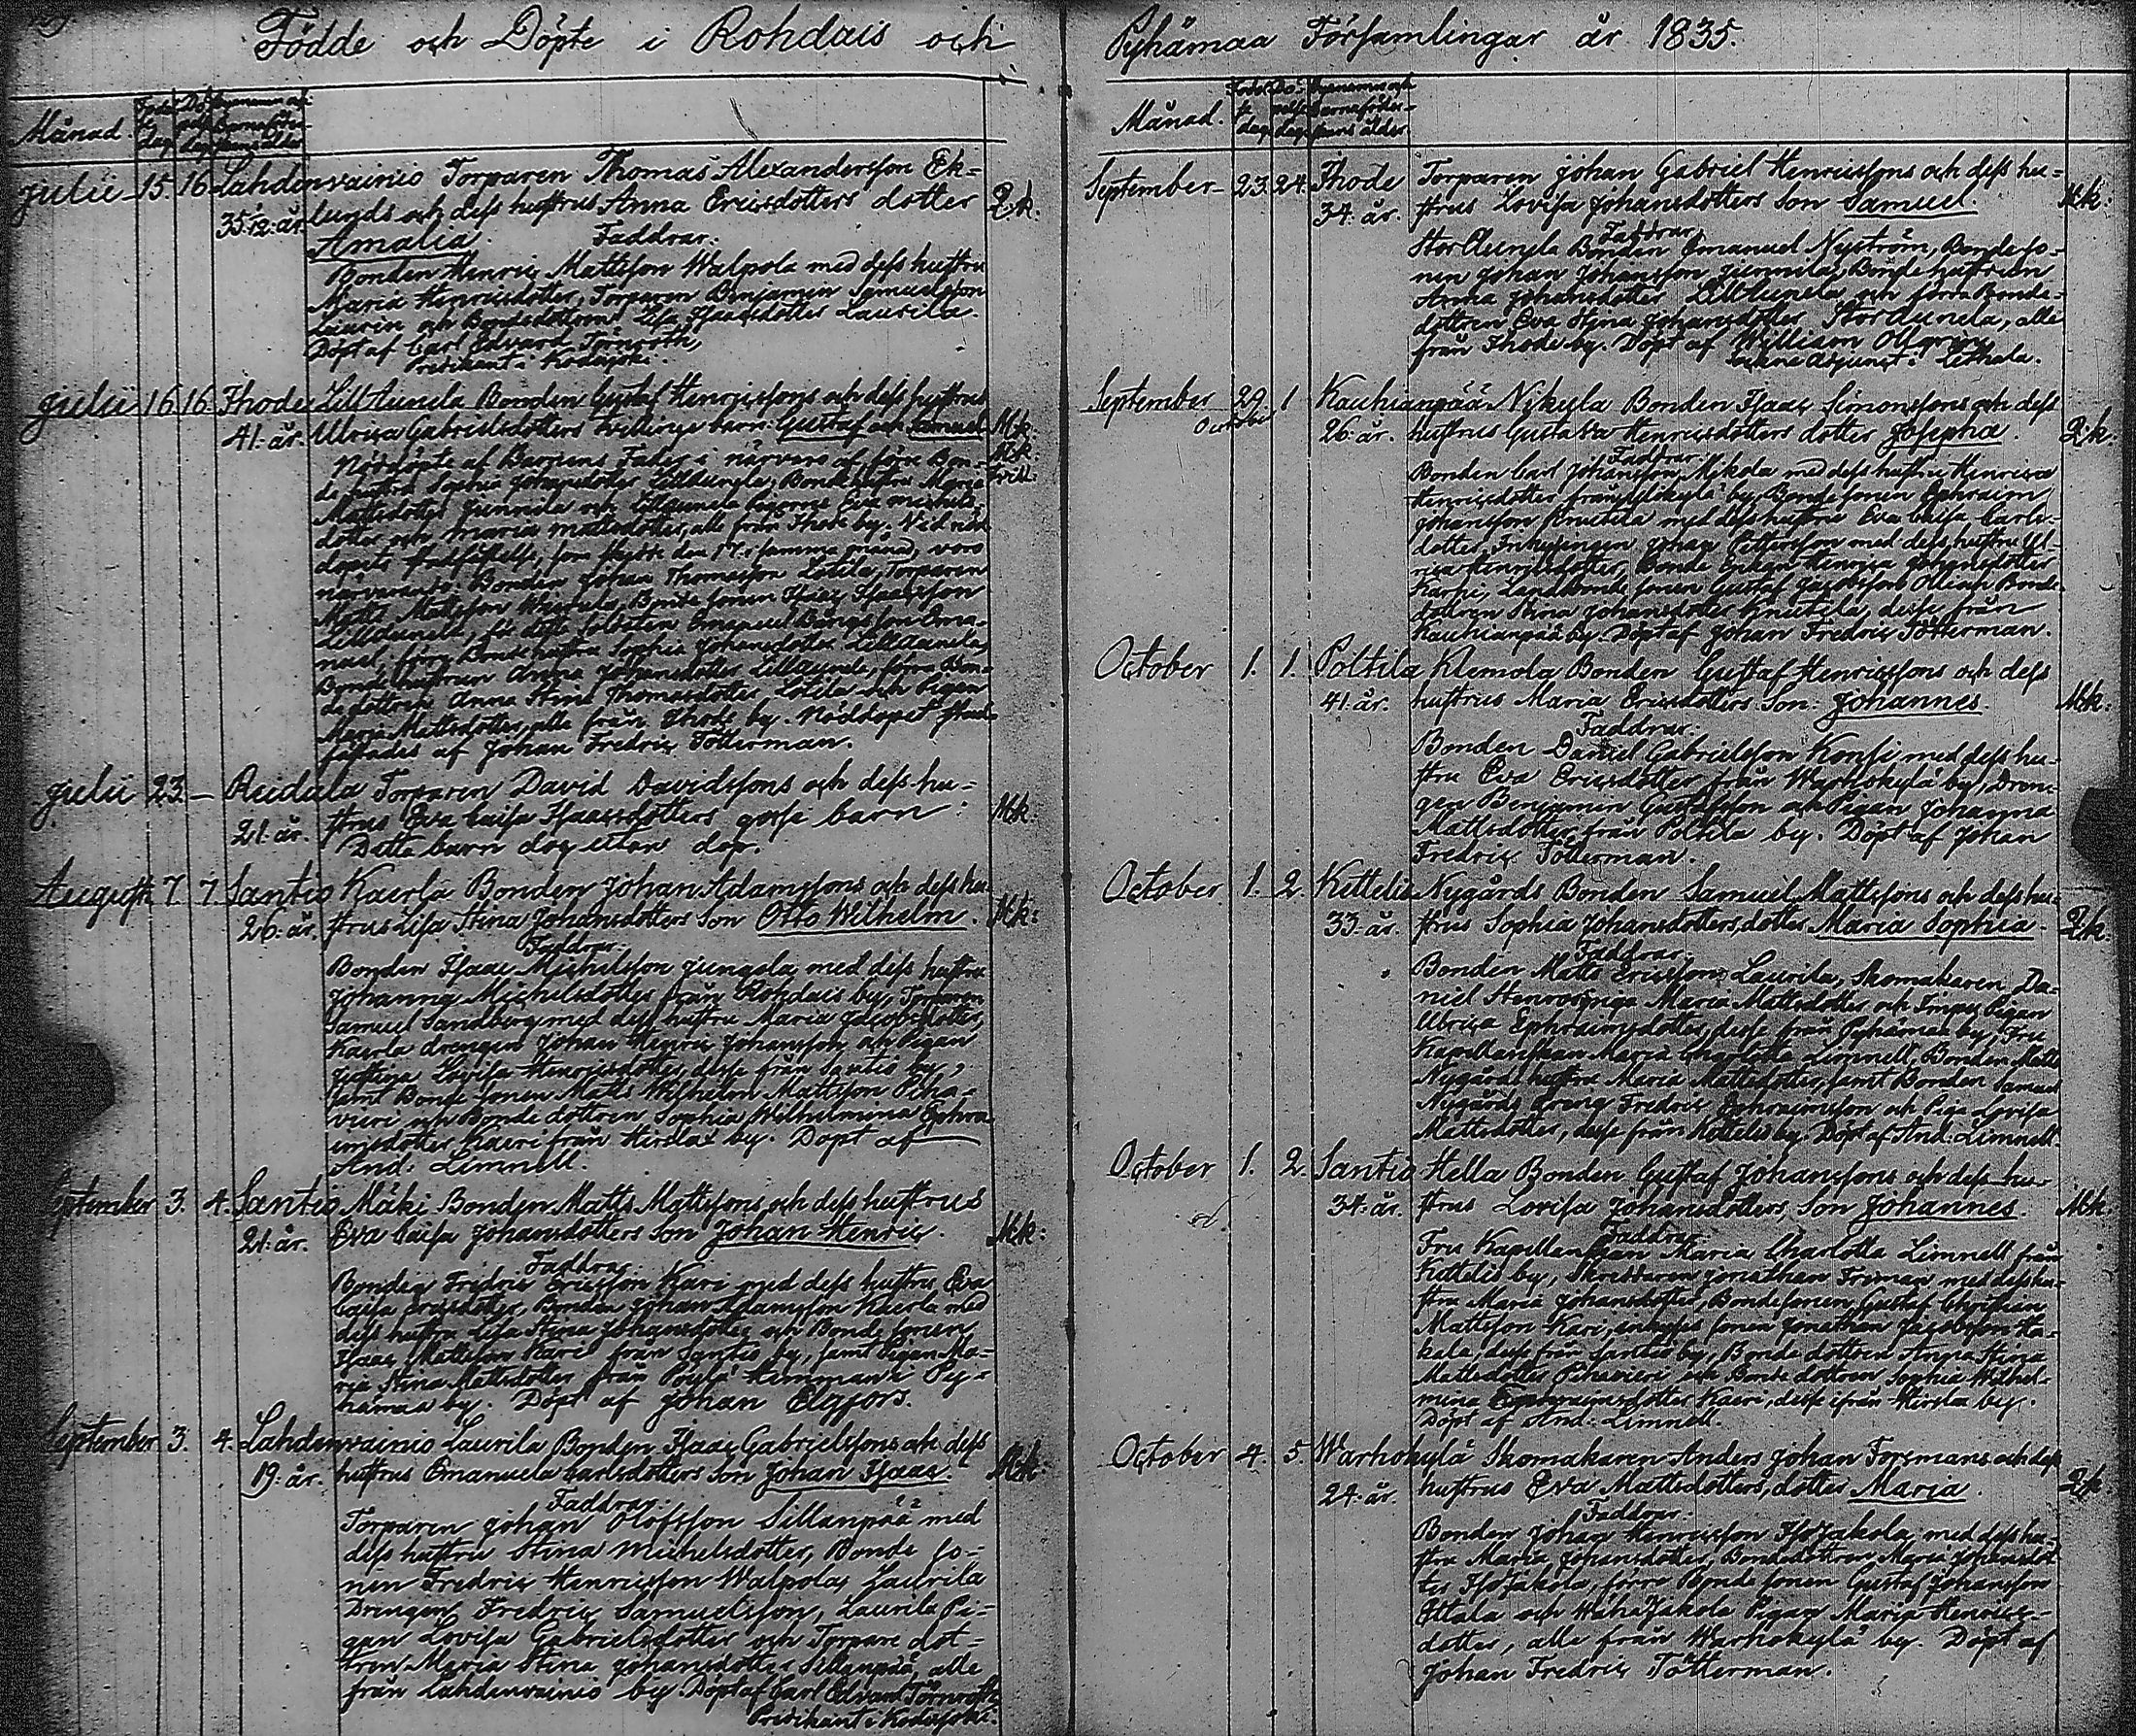 Födde och Döpte i Rohdais och
Månad
Julii 15. 16 Lahdenvainio Torparen Thomas Alexandersson Ek=
35 1/2 år lunds och dess hustrus Anna Ericsdotters dotter Qk:
Amalia. Faddrar:
Bonden Henric Mattsson Walpola med dess hustru
Maria Henricsdotter, Torparen Benjamin Samuelsson
Laurin och Bondedottren Lisa Isaacsdotter Laurila.
Döpt af Carl Edvard Törnroth,
Predikant i Kodisjoki.
Julii 16 16 Ihode Lill Aunela Bonden Gustaf Henricssons och dess hustrus
41. år. Ulrica Gabrielsdotters tvillinge barn Gustaf och Samuel Mk:
Mk:
Nöddöpte af Barnens Fader i närvaro af, förre Bon-
de hustrun Sophia Johansdotter Lill Aunela, Bonde hustru Maria
Mattsdotter Junnila och Lillaunela Pigorne Eva Michels-
dotter och Maria Mattsdotter, alla från Ihode by. Vid nöd
dopets stadfästelse, som skedde den 17. i samma månad, voro
närvarande: Bonden Johan Thomasson Lotila, Torparen
Matts Mattsson, Bonde sonen Isaac Isaacsson
Lillaunela,
nuel, förre Bonde hustru Sophia Johansdotter Lillaunela,
Bonde hustrun Anna Johansdotter Lillaunela, förra Bon-
de dottren Anna Stina Thomasdotter Lotila och Pigan
Maria Mattsdotter, alla från Ihode by. Nöddopet stad-
fästades af Johan Fredric Tötterman.
Julii 23. — Reidila Torparen David Davidssons och dess hu-
21. år. strus Eva Caisa Isaacsdotters gosse barn Mk:
Detta barn dog utan dop.
Augusti 7 7 Santio Kaerla Bonden Johan Adamssons och dess hu-
26. år. strus Lisa Stina Johansdotters Son Otto Wilhelm. Mk:
Faddrar:
Bonden Isaac Michelsson Jungola med dess hustru
Johanna Michelsdotter från Rohdais by, Torparen
Samuel Sandberg med dess hustru Maria Jacobsdotter,
Kaerla drengen Johan Henric Johansson och Pigan
Justina Lovisa Henricsdotter, desse från Santio by,
samt Bonde sonen Matts Wilhelm Mattsson Piha-
vuori och Bonde dottren Sophia Wilhelmina Ephra-
imsdotter Kauri från Hirslax by. Döpt af
And: Limnell.
September 3. 4. Santio Mäki Bonden Matts Mattssons och dess hustrus
21. år. Eva Caisa Johansdotters Son Johan Henric. Mk:
Faddrar:
Bonden Fredric Ericsson Kari med dess hustru Eva
Caisa Ericsdotter, Bonden Johan Adamsson Kaerla med
dess hustru Lisa Stina Johansdotter och Bonde sonen
Isaac Mattsson Kari från Santio by, samt Pigan Ma-
ria Stina Mattsdotter från Pöylä hemman i Py-
hämaa by. Döpt af Johan Elgfors.
September 3. 4. Lahdenvainio Laurila Bonden Isaac Gabrielssons och dess
19. år. hustrus Emanuela Carlsdotters Son Johan Isaac. Mk:
Faddrar:
Torparen Johan Olofsson Sillanpää med
dess hustru Stina Michelsdotter, Bonde so-
nen Fredric Henricsson Walpola, Laurila
Drengen Fredric Samuelsson, Laurila Pi-
gan Lovisa Gabrielsdotter och Torpare dot-
tren Maria Stina Johansdotter Sillanpää, alla
från Lahdenvainio by. Döpt af Carl Edvard Törnroth,
Predikant i Kodisjoki.
Pyhämaa Församlingar år 1835.
Månad.
September 23. 24. Ihode Torparen Johan Gabriel Henricssons och dess hu-
34. år. strus Lovisa Johansdotters Son Samuel. Mk:
Faddrar:
Stor Aunela Bonden Emanuel Nyström, Bonde so-
nen Johan Johansson Junnila, Bonde hustrun
Anna Johansdotter Lillaunela och förra Bonde-
dottren Eva Stina Johansdotter Storaunela, alla
från Ihode by. Döpt af William Ollgren,
Sockne Adjunct i Letala.
September 29 1 Kauhianpää Nykyla Bonden Isaac Simonssons och dess
October
26. år. hustrus Gustava Henricsdotters dotter Josepha. Qk:
Faddrar:
Bonden Carl Johansson Mikola med dess hustru Henrica
Henricsdotter från by, Bonde sonen Ephraim
Johansson Knutila med dess hustru Eva Caisa Carls-
dotter, Johan Pettersson med dess hustru Ul-
rica Henricsdotter, Bonde Enkan Henrica Johansdotter
Karhi, Landbonde sonen Gustaf Jacobsson Bonde
dottren Stina Johansdotter Knutila, desse från
Kauhianpää by. Döpt af Johan Fredric Tötterman.
October 1. 1. Poltila Klemola Bonden Gustaf Henricssons och dess
41. år. hustrus Maria Ericsdotters Son: Johannes. Mk:
Faddrar:
Bonden Daniel Gabrielsson Konsi med dess hu-
stru Eva Ericsdotter från Warhokylä by, Dren-
gen Benjamin Gustafsson och Pigan Johanna
Mattsdotter från Poltila by. Döpt af Johan
Fredric Tötterman.
October 1. 2. Kettelis Nygårds Bonden Samuel Mattssons och dess hu-
33. år. strus Sophia Johansdotters, dotter Maria Sophia. Qk:
Faddrar:
Bonden Matts Ericsson Laurila, Skomakaren Da-
niel Maria Mattsdotter och Pigan
Ulrica Ephraimsdotter, desse från Pyhämaa by, Fru
Kapellanskan Maria Charlotta Limnell, Bonden Matts
Nygårds hustru Maria Mattsdotter, samt Bonden Samuel
Nygårds dreng Fredric Ephraimsson och Piga Lovisa
Mattsdotter, desse från Kettelis by. Döpt af And: Limnell.
October 1. 2. Santio Hella Bonden Gustaf Johanssons och dess hu-
34. år. strus Lovisa Johansdotters, Son Johannes. Mk:
Faddrar:
Fru Kapellanskan Maria Charlotta Limnell från
Kettelis by, Skreddaren Jonathan Friman med dess hu-
stru Maria Johansdotter, Bondesonen Gustaf Christian
Mattsson Kari, sonen Jonathan Jacobsson Ha-
kala, desse från Santio by, Bonde dottren Anna Stina
Mattsdotter Pihavuori och Bonde dottren Sophia Wilhel-
mina Ephraimsdotter Kauri, desse ifrån Hirslax by.
Döpt af And: Limnell.
October 4. 5. Warhokylä Skomakaren Anders Johan Forsmans och dess
24. år. hustrus Eva Mattsdotters, dotter Maria. Qk
Faddrar:
Bonden Johan Henricsson Iso Jakola med dess hu-
stru Maria Johansdotter, Bondedottren Maria Johansdot-
ter Iso Jakola, förre Bonde sonen Gustaf Johansson
Ittala och Wäha Jakola Pigan Maria Henrics-
dotter, alla från Warhokylä by. Döpt af
Johan Fredric Tötterman.